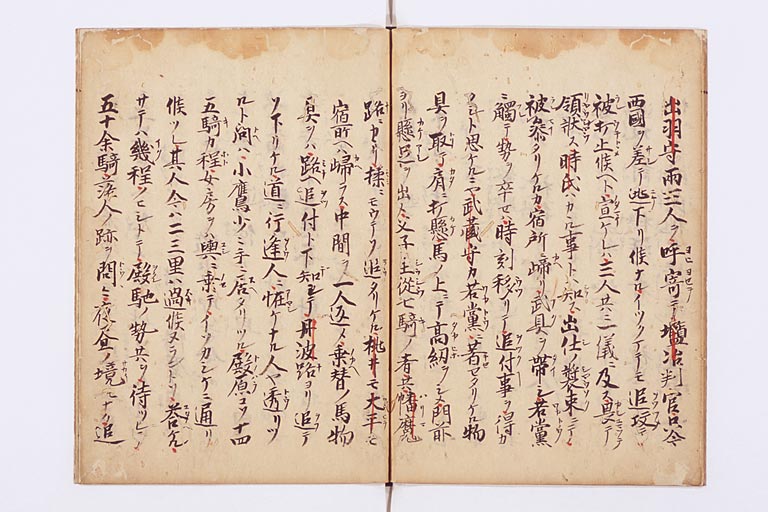 出羽守両三人ヲ呼寄テ塩冶判官只今
西國ヲ差テ逃下リ候ナルイツクマテモ追攻テ
被打止候ヘト宣ケレハ三人共ニ一儀ニ及ス畏テ
領状ス時氏ハカヽル事トハ知ス出仕ノ装束ニテ
被参タリケルカ宿所ニ歸リ武具ヲ帯シ若黨
ニ觸テ勢ヲ卒セハ時刻移リテ追付事ヲ得カ
シト思ケルニヤ武蔵守カ若黨ニ著セタリケル物
具ヲ取テ肩ニ打懸馬ノ上ニテ高紐ヲシメ門前
ヨリ懸足ヲ出シ父子主従七騎ノ者共幡磨
路ニカヽリ揉ニモウテソ追タリケル桃井モ大平モ
宿所ヘハ歸ラス中間ヲ一人返シ乗替ノ馬物
具ヲハ路ヘ追付ト下知シテ丹波路ヨリ追テ
ソ下リケル道ニ行逢人ニ怪ケナル人ヤ透リツ
ルト問ハ小鷹少々手ニ居タリツル殿原コソ十四
五騎カ程女房ヲハ輿ニ乗テイソカシケニ通リ
候ツレ其人今ハ二三里ハ過候ヌラントソ答ケル
サテハ幾程ノヒシトテ殿馳ノ勢共ヲ待ツレ
五十余騎落人ノ跡ヲ問々夜昼ノ境モナク追